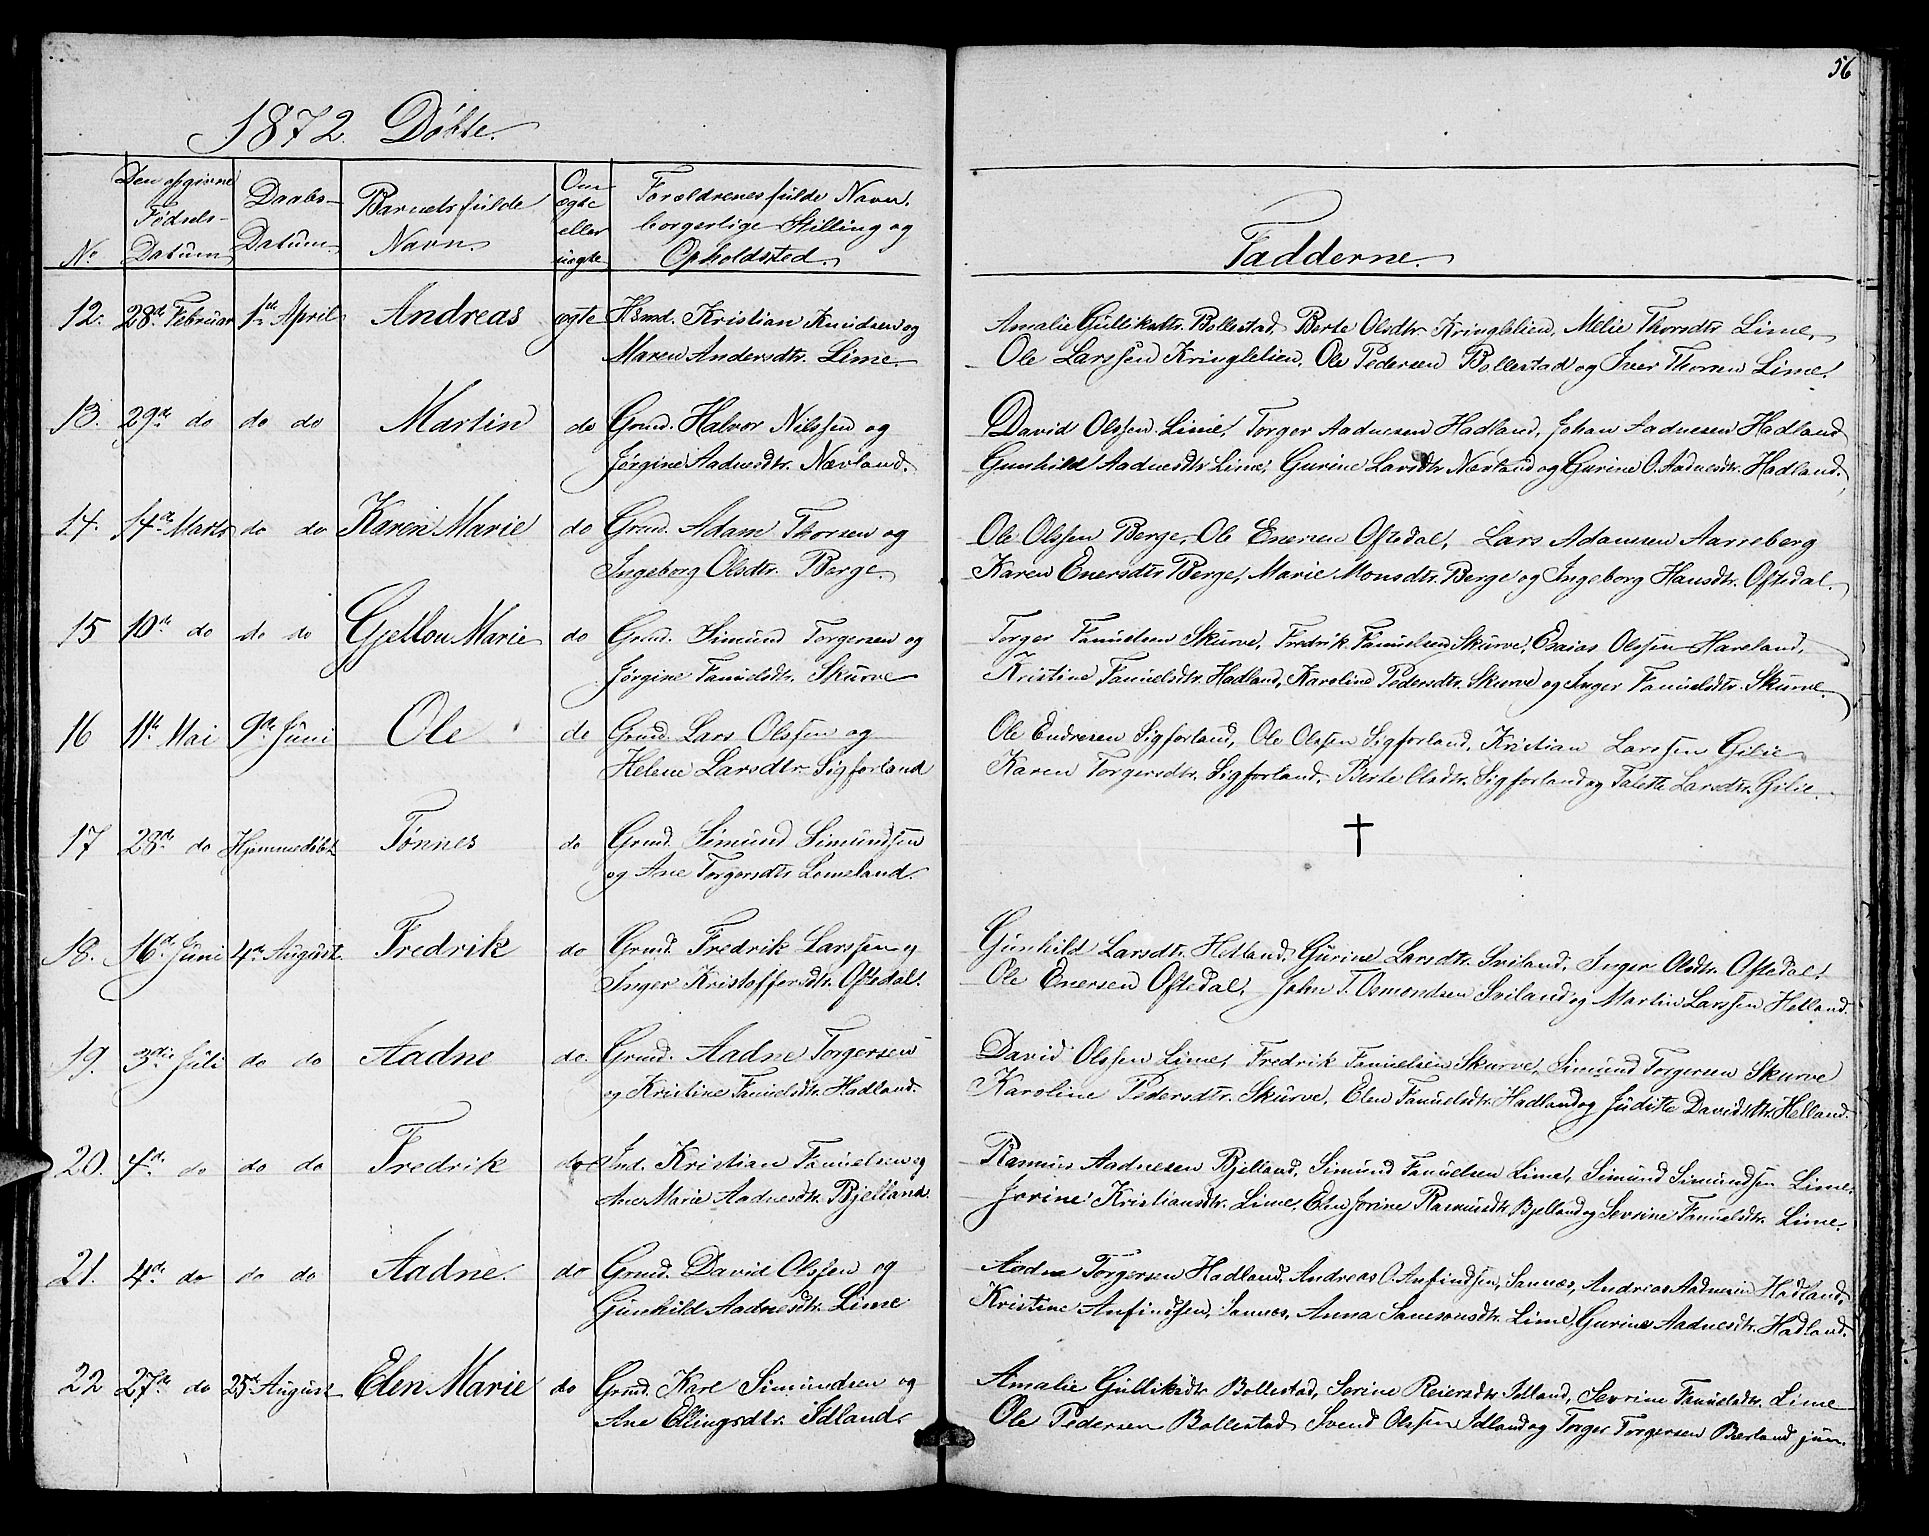 56
1872. Döbte.
No
Den opgivne Fødsels-Datum
Daabs-Datum
Barnets fulde Navn.
Om ægte eller uægte
Forældrenes fulde Navn, borgerlige Stilling og Opholdsted.
Fadderne.
12. 28de Februar 1ste April Andreas ægte Hsmd. Kristian Knudsen og
Maren Andersdtr. Lime.
Amalie Gulliksdtr. Bollestad, Berte Olsdtr Kringlelien, Melie Thorsdtr Lime,
Ole Larssen Kringlelien, Ole Pedersen Bollestad og Iver Thorsen Lime.
13. 29de do do do Martin do Grmd. Halvor Nilssen og
Jørgine Aadnesdtr. Nævland.
David Olssen Lime, Torger Aadnesen Hadland, Johan Aadnesen Hadland
Gunhild Aadnesdtr Lime, Gurine Larsdtr Nævland og Gurine O. Aadnesdtr. Hadland.
14. 14de Marts do do Karen Marie do Grmd. Adam Thorsen og
Ingeborg Olsdtr. Berge.
Ole Olssen Berge, Ole Enersen Oftedal, Lars Adamsen Aarreberg
Karen Enersdtr Berge, Marie Monsdtr. Berge og Ingeborg Hansdtr. Oftedal.
15 10de do do do Gjellou Marie do Grmd. Simund Torgersen og
Jørgine Fanuelsdtr. Skurve
Torger Fanuelsen Skurve, Fredrik Fanuelsen Skurve, Esaias Olssen Haveland,
Kristine Fanuelsdtr. Hadland, Karoline Pedersdtr. Skurve og Inger Fanuelsdtr. Skurve.
16 11te Mai 9de Juni Ole do Grmd. Lars Olssen og
Helene Larsdtr. Sigforland
Ole Endresen Sigforland, Ole Olssen Sigforland, Kristian Larssen Gilie
Karen Torgersdtr. Sigforland, Berte Olsdtr. Sigforland og Talette Larsdtr. Gilie.
17 28de do Hjemmedöbt Tønnes do Grmd. Simund Simundsen
og Ane Torgersdtr. Lomeland.
†
18. 16de Juni 4de August Fredrik do Grmd. Fredrik Larssen og
Inger Kristoffersdtr. Oftedal.
Gunhild Larsdtr. Hetland, Gurine Larsdtr. Sviland, Inger Olsdtr. Oftedal,
Ole Enersen Oftedal, John T. Osmondsen Sviland og Martin Larssen Hetland.
19. 3die Juli do do Aadne do. Grmd. Aadne Torgersen
og Kristine Fanuelsdtr. Hadland.
David Olssen Lime, Fredrik Fanuelsen Skurve, Simund Torgersen Skurve
Karoline Pedersdtr. Skurve, Elen Fanuelsdtr. Hadland og Juditte Davidsdtr. Helland.
20. 4de do do do Fredrik do Ind. Kristian Fanuelsen og
Ane Marie Aadnesdtr. Bjelland.
Rasmus Aadnesen Bjelland, Simund Fanuelsen Lime, Simund Simundsen Lime,
Jorine Kristiansdtr. Lime, Elen Jorine Rasmusdtr Bjelland og Sevrine Fanuelsdtr. Lime.
21. 4de do do do Aadne. do Grmd. David Olssen og
Gunhild Aadnesdtr. Lime
Aadne Torgersen Hadland, Andreas O. Anfindsen, Sannes, Andreas Aadnesen Hadland,
Kristine Anfindsen, Sannes, Anna Samsonsdtr. Lime, Gurine Aadnesdtr. Hadland.
22 27de do 25de August Elen Marie do Grmd. Karl Simundsen og
Ane Ellingsdtr. Idland.
Amalie Gulliksdtr Bollestad, Serine Reiersdtr Idland, Sevrine Fanuelsdtr. Lime
Ole Pedersen Bollestad, Svend Olssen Idland og Torger Torgersen Børland jun.